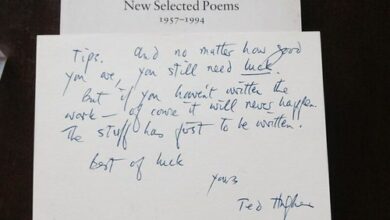 New Selected Poems
1957–1994
Tips. And no matter how good
you are, you still need luck.
But if you haven't written the
work — of corse it will never happen.
The stuff has first to be written.
Best of luck
yours
Ted Hughes